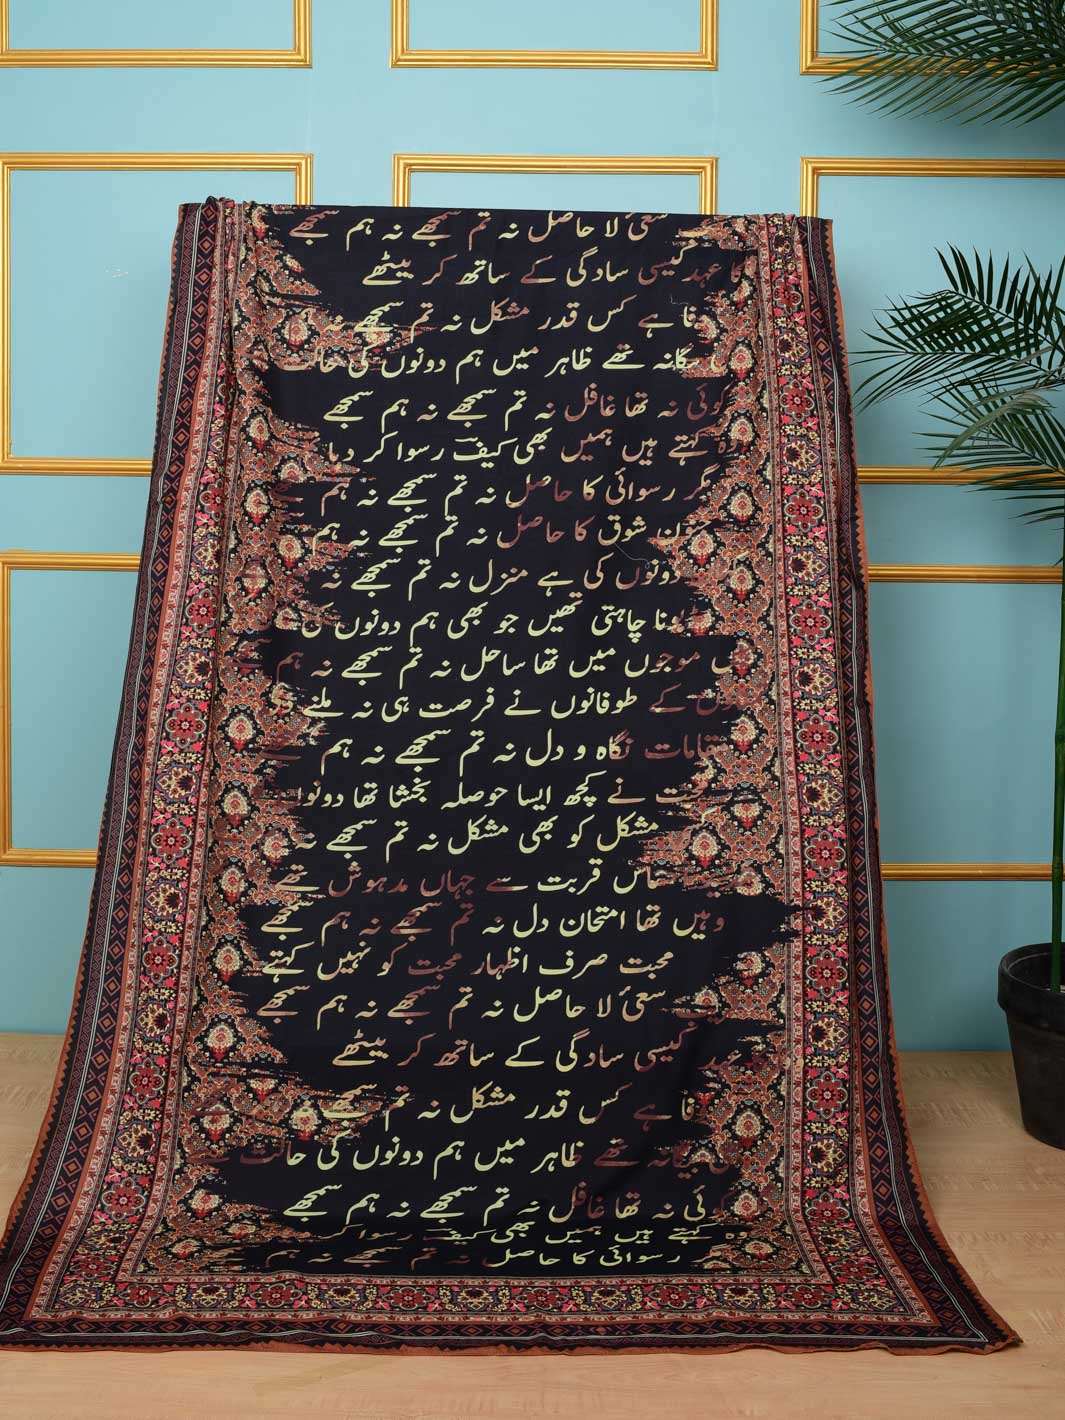 سعیٔ لا حاصل نہ تم سمجھے نہ ہم سمجھے
عہد کیسی سادگی کے ساتھ کر بیٹھے
ہے کس قدر مشکل نہ تم سمجھے نہ
تھے ظاہر میں ہم دونوں کی حالت
کوئی نہ تھا غافل نہ تم سمجھے نہ ہم سمجھے
وہ کہتے ہیں ہمیں بھی کیف رسوا کر دیا
مگر رسوائی کا حاصل نہ تم سمجھے نہ ہم
شوق کا حاصل نہ تم سمجھے نہ ہم
دونوں کی ہے منزل نہ تم سمجھے نہ
چاہتی تھیں جو بھی ہم دونوں
موجوں میں تھا ساحل نہ تم سمجھے نہ ہم
کے طوفانوں نے فرصت ہی نہ ملنے دی
مقامات نگاہ و دل نہ تم سمجھے نہ ہم
نے کچھ ایسا حوصلہ بخشا تھا دونوں
مشکل کو بھی مشکل نہ تم سمجھے نہ
قربت سے جہاں مدہوش تھے
وہیں تھا امتحان دل نہ تم سمجھے نہ ہم سمجھے
محبت صرف اظہار محبت کو نہیں کہتے
سعیٔ لا حاصل نہ تم سمجھے نہ ہم سمجھے
عہد کیسی سادگی کے ساتھ کر بیٹھے
ہے کس قدر مشکل نہ تم سمجھے
تھے ظاہر میں ہم دونوں کی حالت
کوئی نہ تھا غافل نہ تم سمجھے نہ ہم سمجھے
وہ کہتے ہیں ہمیں بھی کیف رسوا کر
رسوائی کا حاصل نہ تم سمجھے نہ ہم